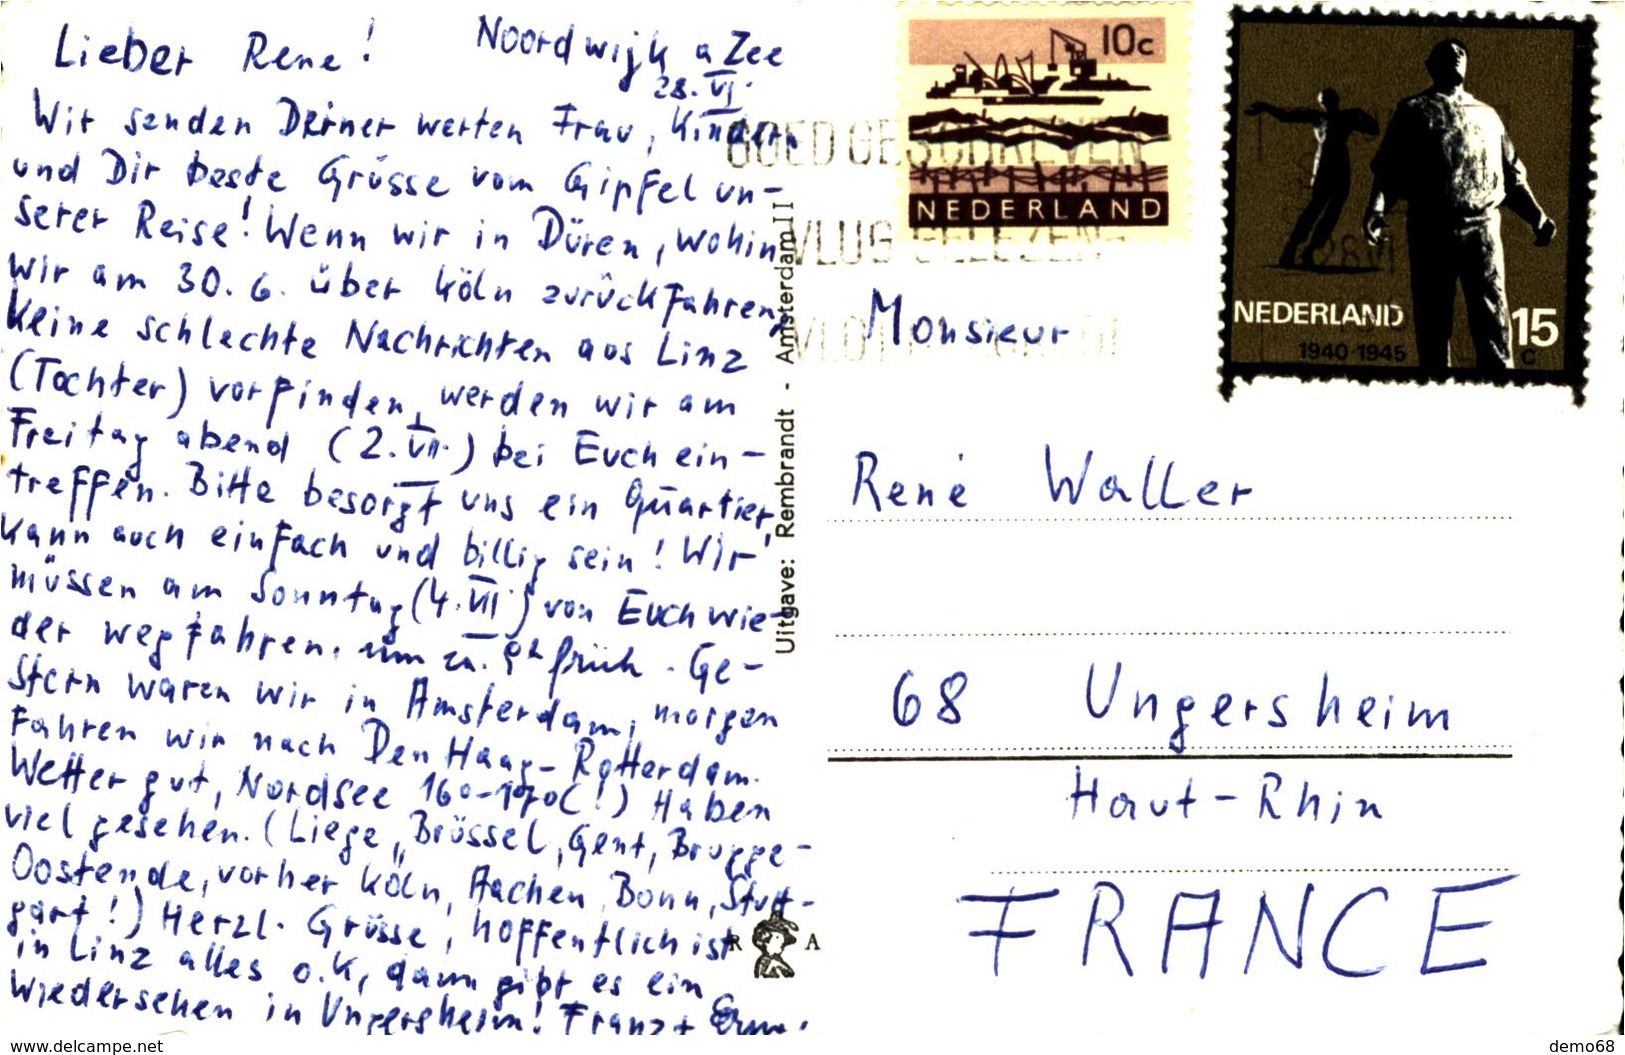 Lieber Rene! Noordwijk a Zee
28. VI.
Wir senden Deiner werten Frau, Kindern
und Dir beste Grüsse vom Gipfel un-
serer Reise! Wenn wir in Düren, wohin
wir am 30. 6. über Köln zurückfahren,
keine schlechte Nachrichten aus Linz
(Tochter) vorfinden, werden wir am
Freitag abend (2. VII.) bei Euch ein-
treffen. Bitte besorgt uns ein Quartier,
kann auch einfach und billig sein! Wir
müssen am Sonntag (4. VII) von Euch wie-
der wegfahren, um ca. 9h früh. Ge-
stern waren wir in Amsterdam, morgen
fahren wir nach Den Haag-Rotterdam.
Wetter gut, Nordsee 16°-17°C(!) Haben
viel gesehen. (Liege, Brüssel, Gent, Brugge-
Oostende, vorher Köln, Aachen, Bonn, Stutt-
gart!) Herzl. Grüsse, hoffentlich ist
in Linz alles o.k., dann gibt es ein
Wiedersehen in Ungersheim! Franz +
Uitgave: Rembrandt - Amsterdam II
R A
10c
NEDERLAND
NEDERLAND 15 c
1940-1945
GOED GESCHREVEN
VLUG GELEZEN
VLOT
Monsieur
René Waller
68 Ungersheim
Haut-Rhin
FRANCE
www.delcampe.net
demo68